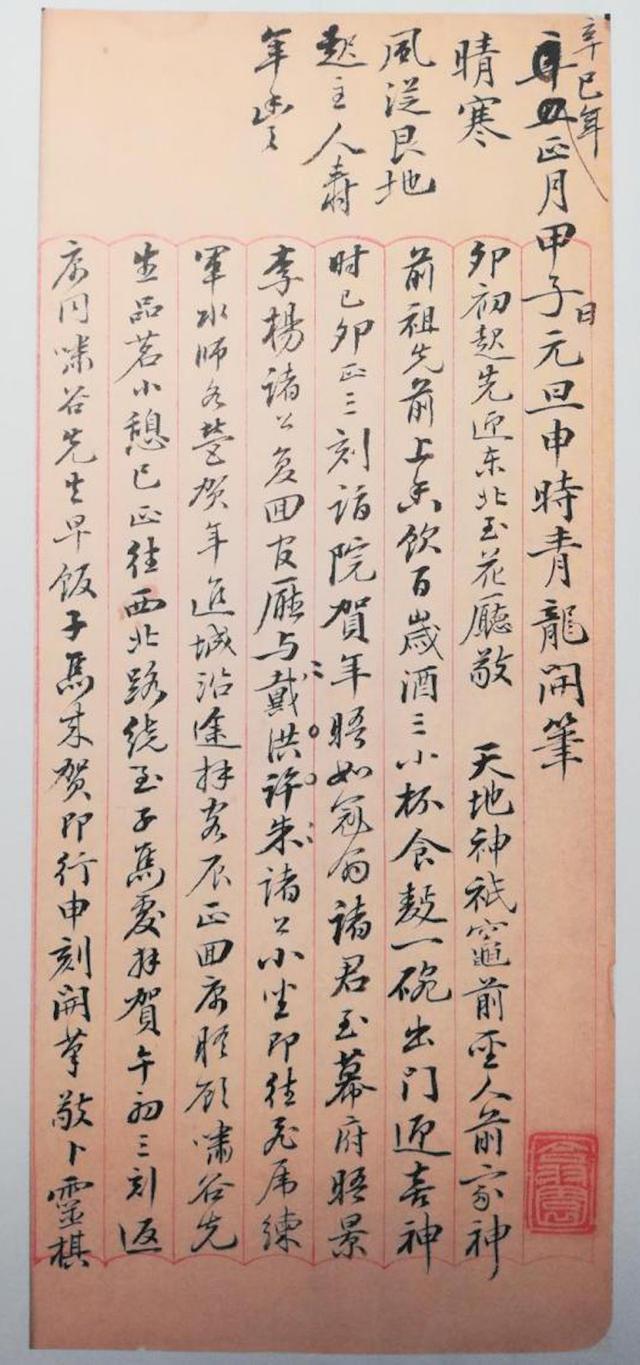 辛巳年
正月甲子日元旦申時青龍開筆
晴寒
風從艮地
起主人壽
年豐
卯初起先迎东北至花廳敬 天地神祇竈前聖人前家神
前祖先前上香飲百歲酒三小杯食麪一碗出門迎喜神
时已卯正三刻詣院賀年晤如冠翁諸君至幕府晤景
李楊諸公复回官廳与戴洪许朱諸公小坐即往虎威練
軍水師各营贺年進城沿途拜客辰正回寓晤顾啸谷先
生品茗小憩巳正往西北路绕至子馬處拜賀午初三刻返
寓同啸谷先生早饭子馬来贺即行申刻開筆敬卜靈棋